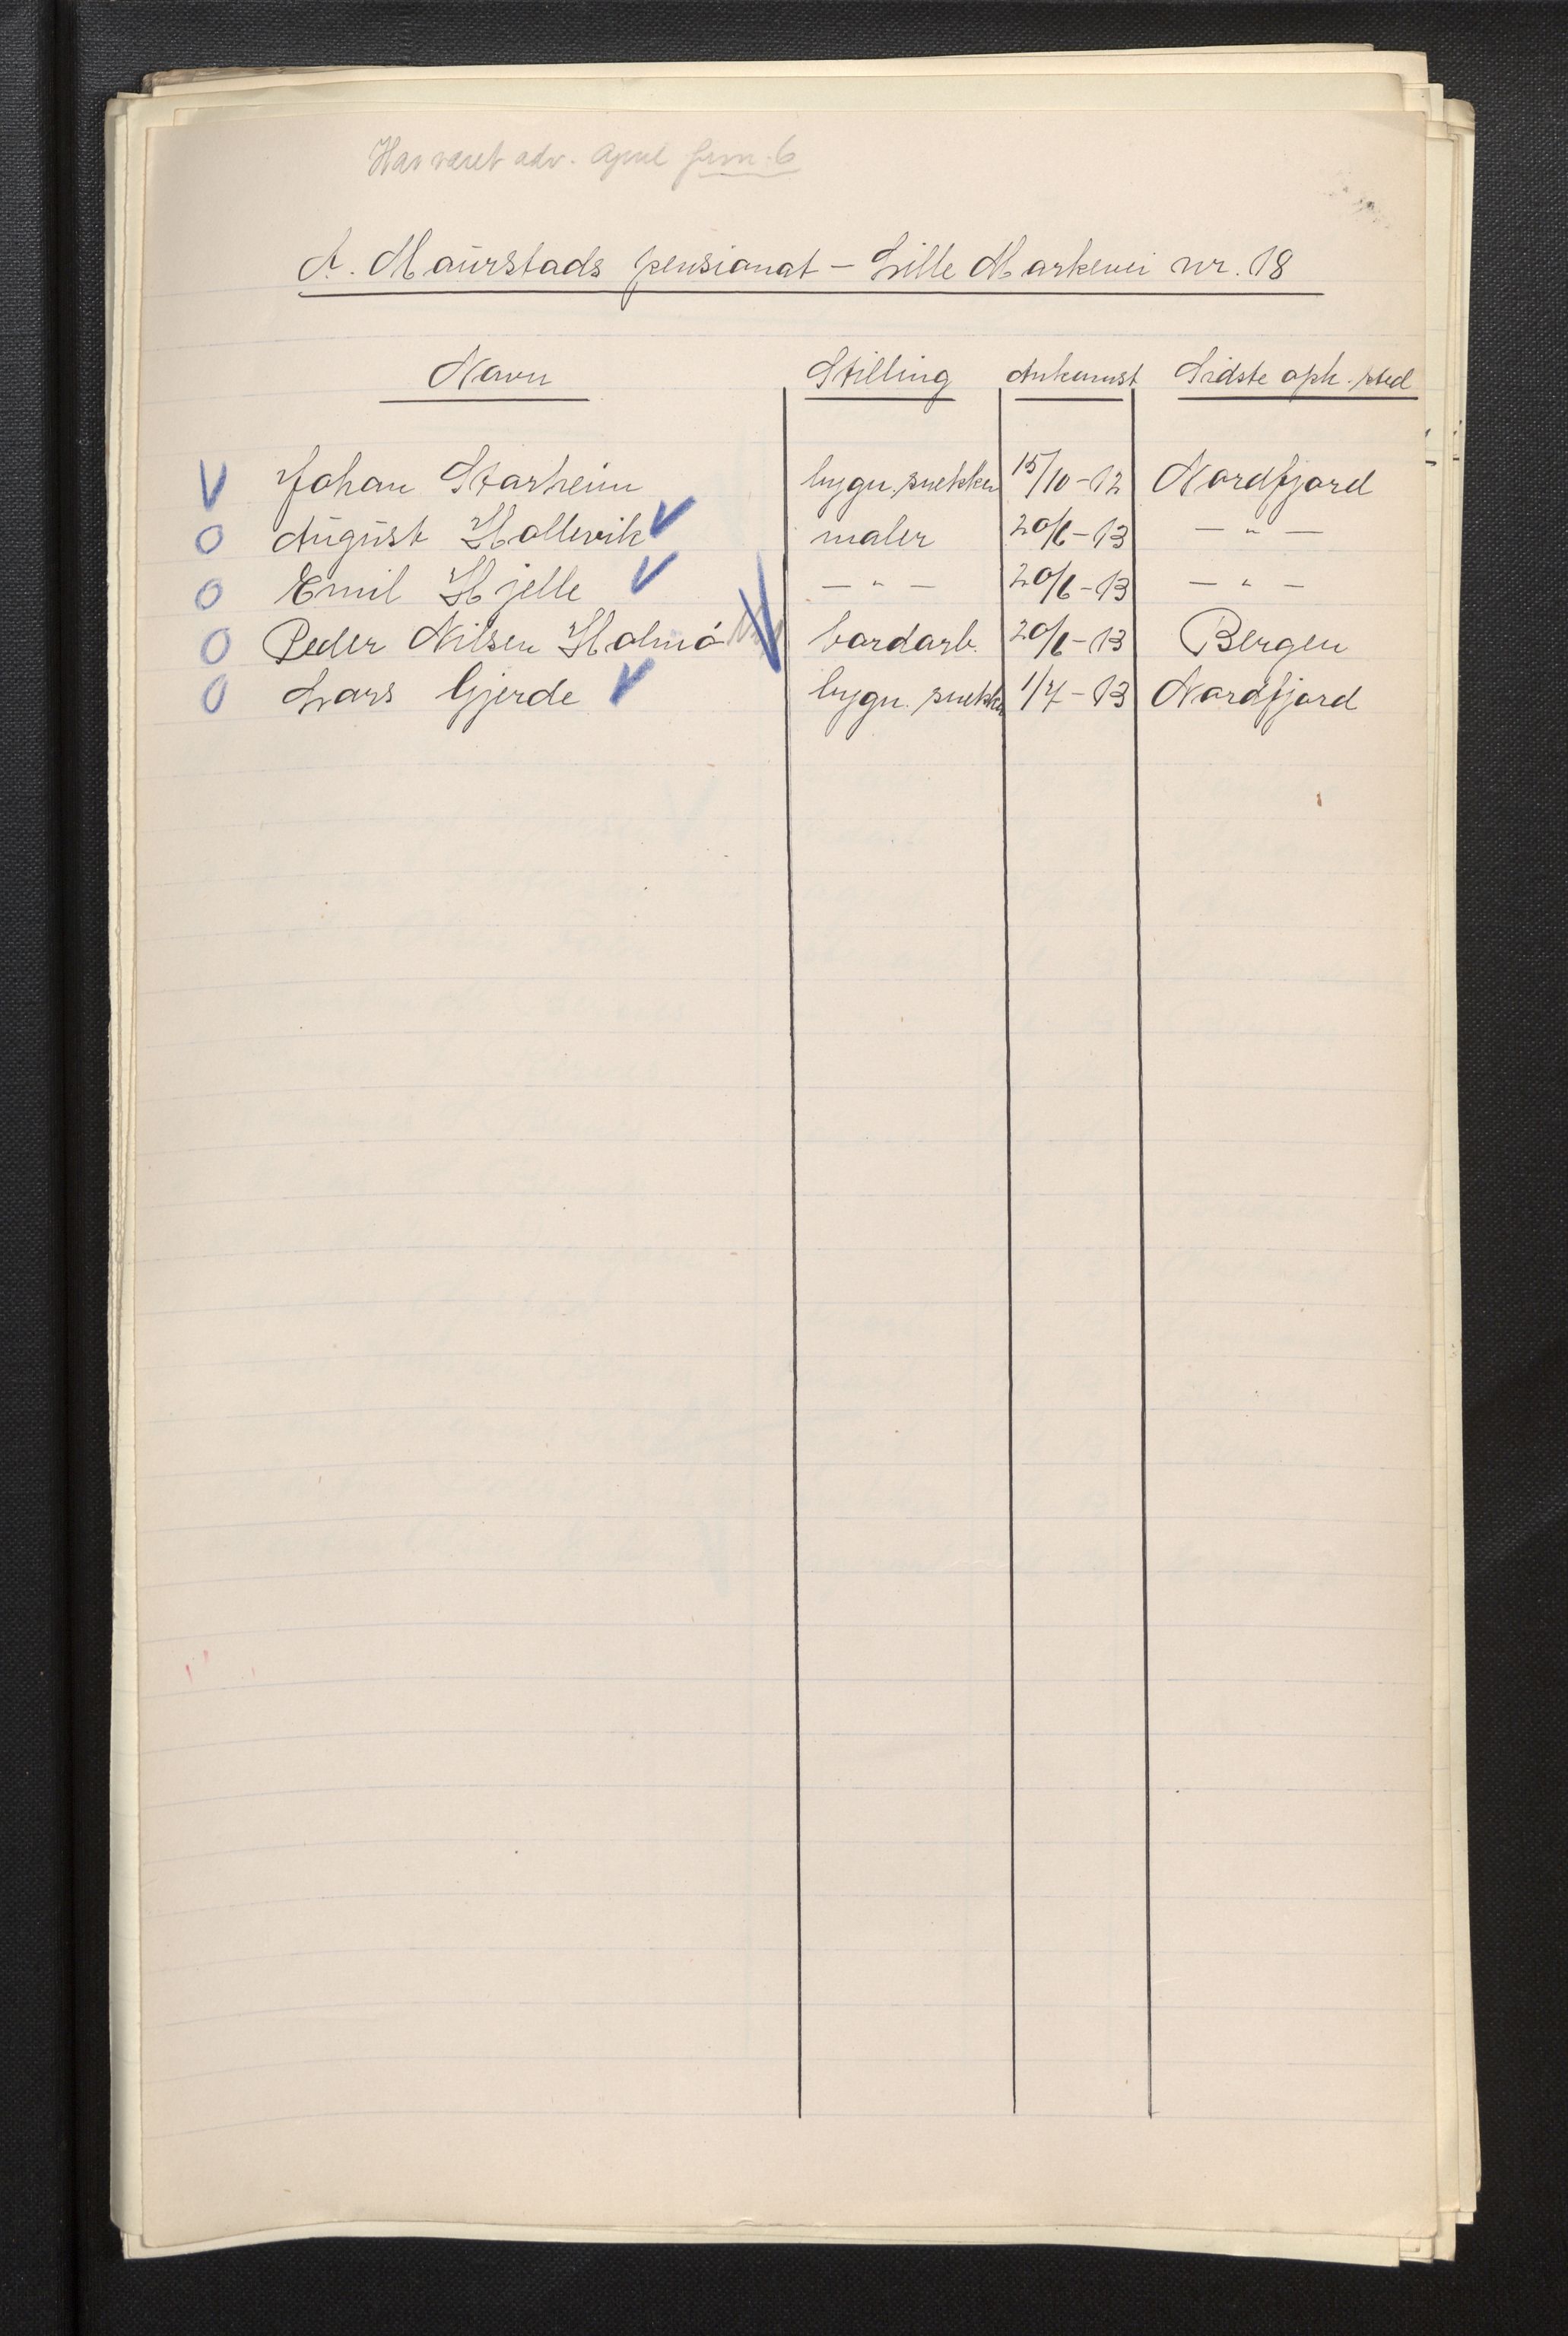 Har været adv. April
A. Maurstads pensionat – Lille Markevei nr. 18
Navn Stilling Ankomst Sidste oph. sted
V Johan Starheim bygn. snekker 15/10-12 Nordfjord
O August Hollevik V maler 20/6-13 — " —
O Emil Hjelle V — " — 20/6-13 — " —
O Peder Nilsen Holmö bordarb. 20/6-13 Bergen
O Lars Gjerde V bygn. snekker 1/7-13 Nordfjord